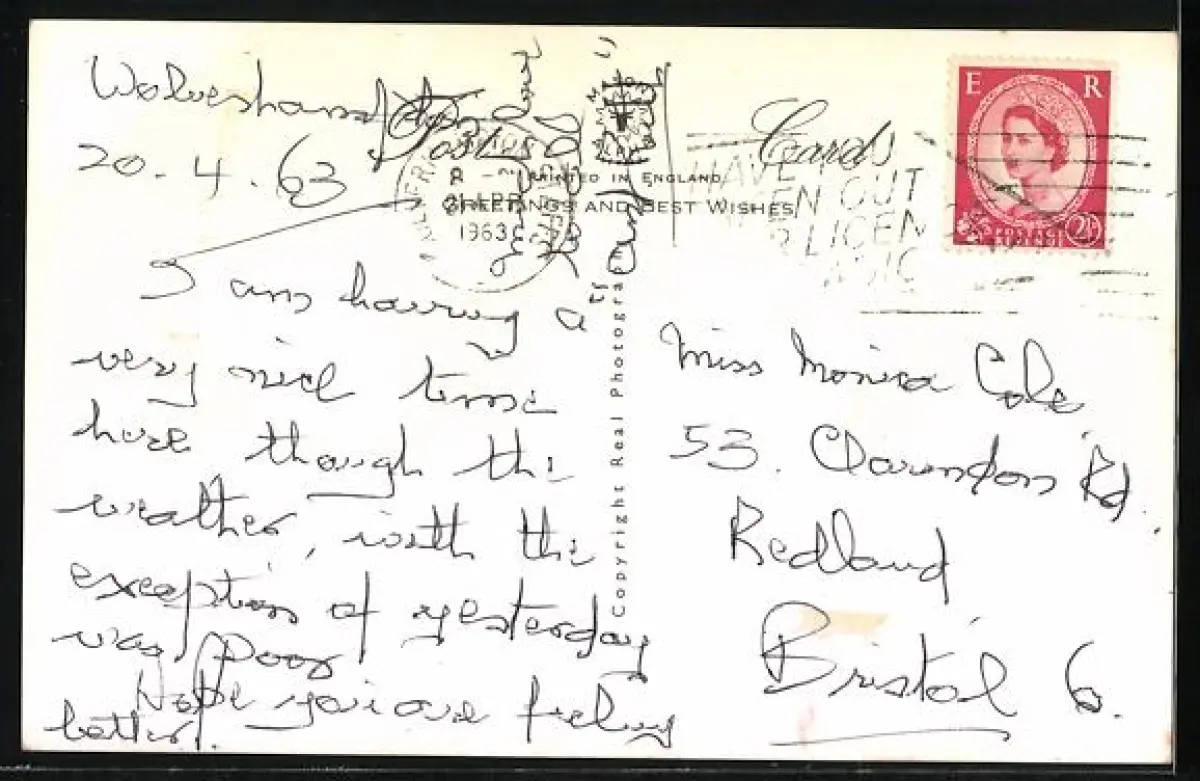 Wolverhampton
20.4.63
I am having a
very nice time
here though the
weather, with the
exception of yesterday
was poor
Hope you are feeling
better.
Post Cards
PRINTED IN ENGLAND
GREETINGS AND BEST WISHES
21 APR
1963
HAVE
OUT
LICEN
E R
POSTAGE
2½
Copyright Real Photograph
Miss Monica Cole
53. Clarendon Rd.
Redland
Bristol 6.